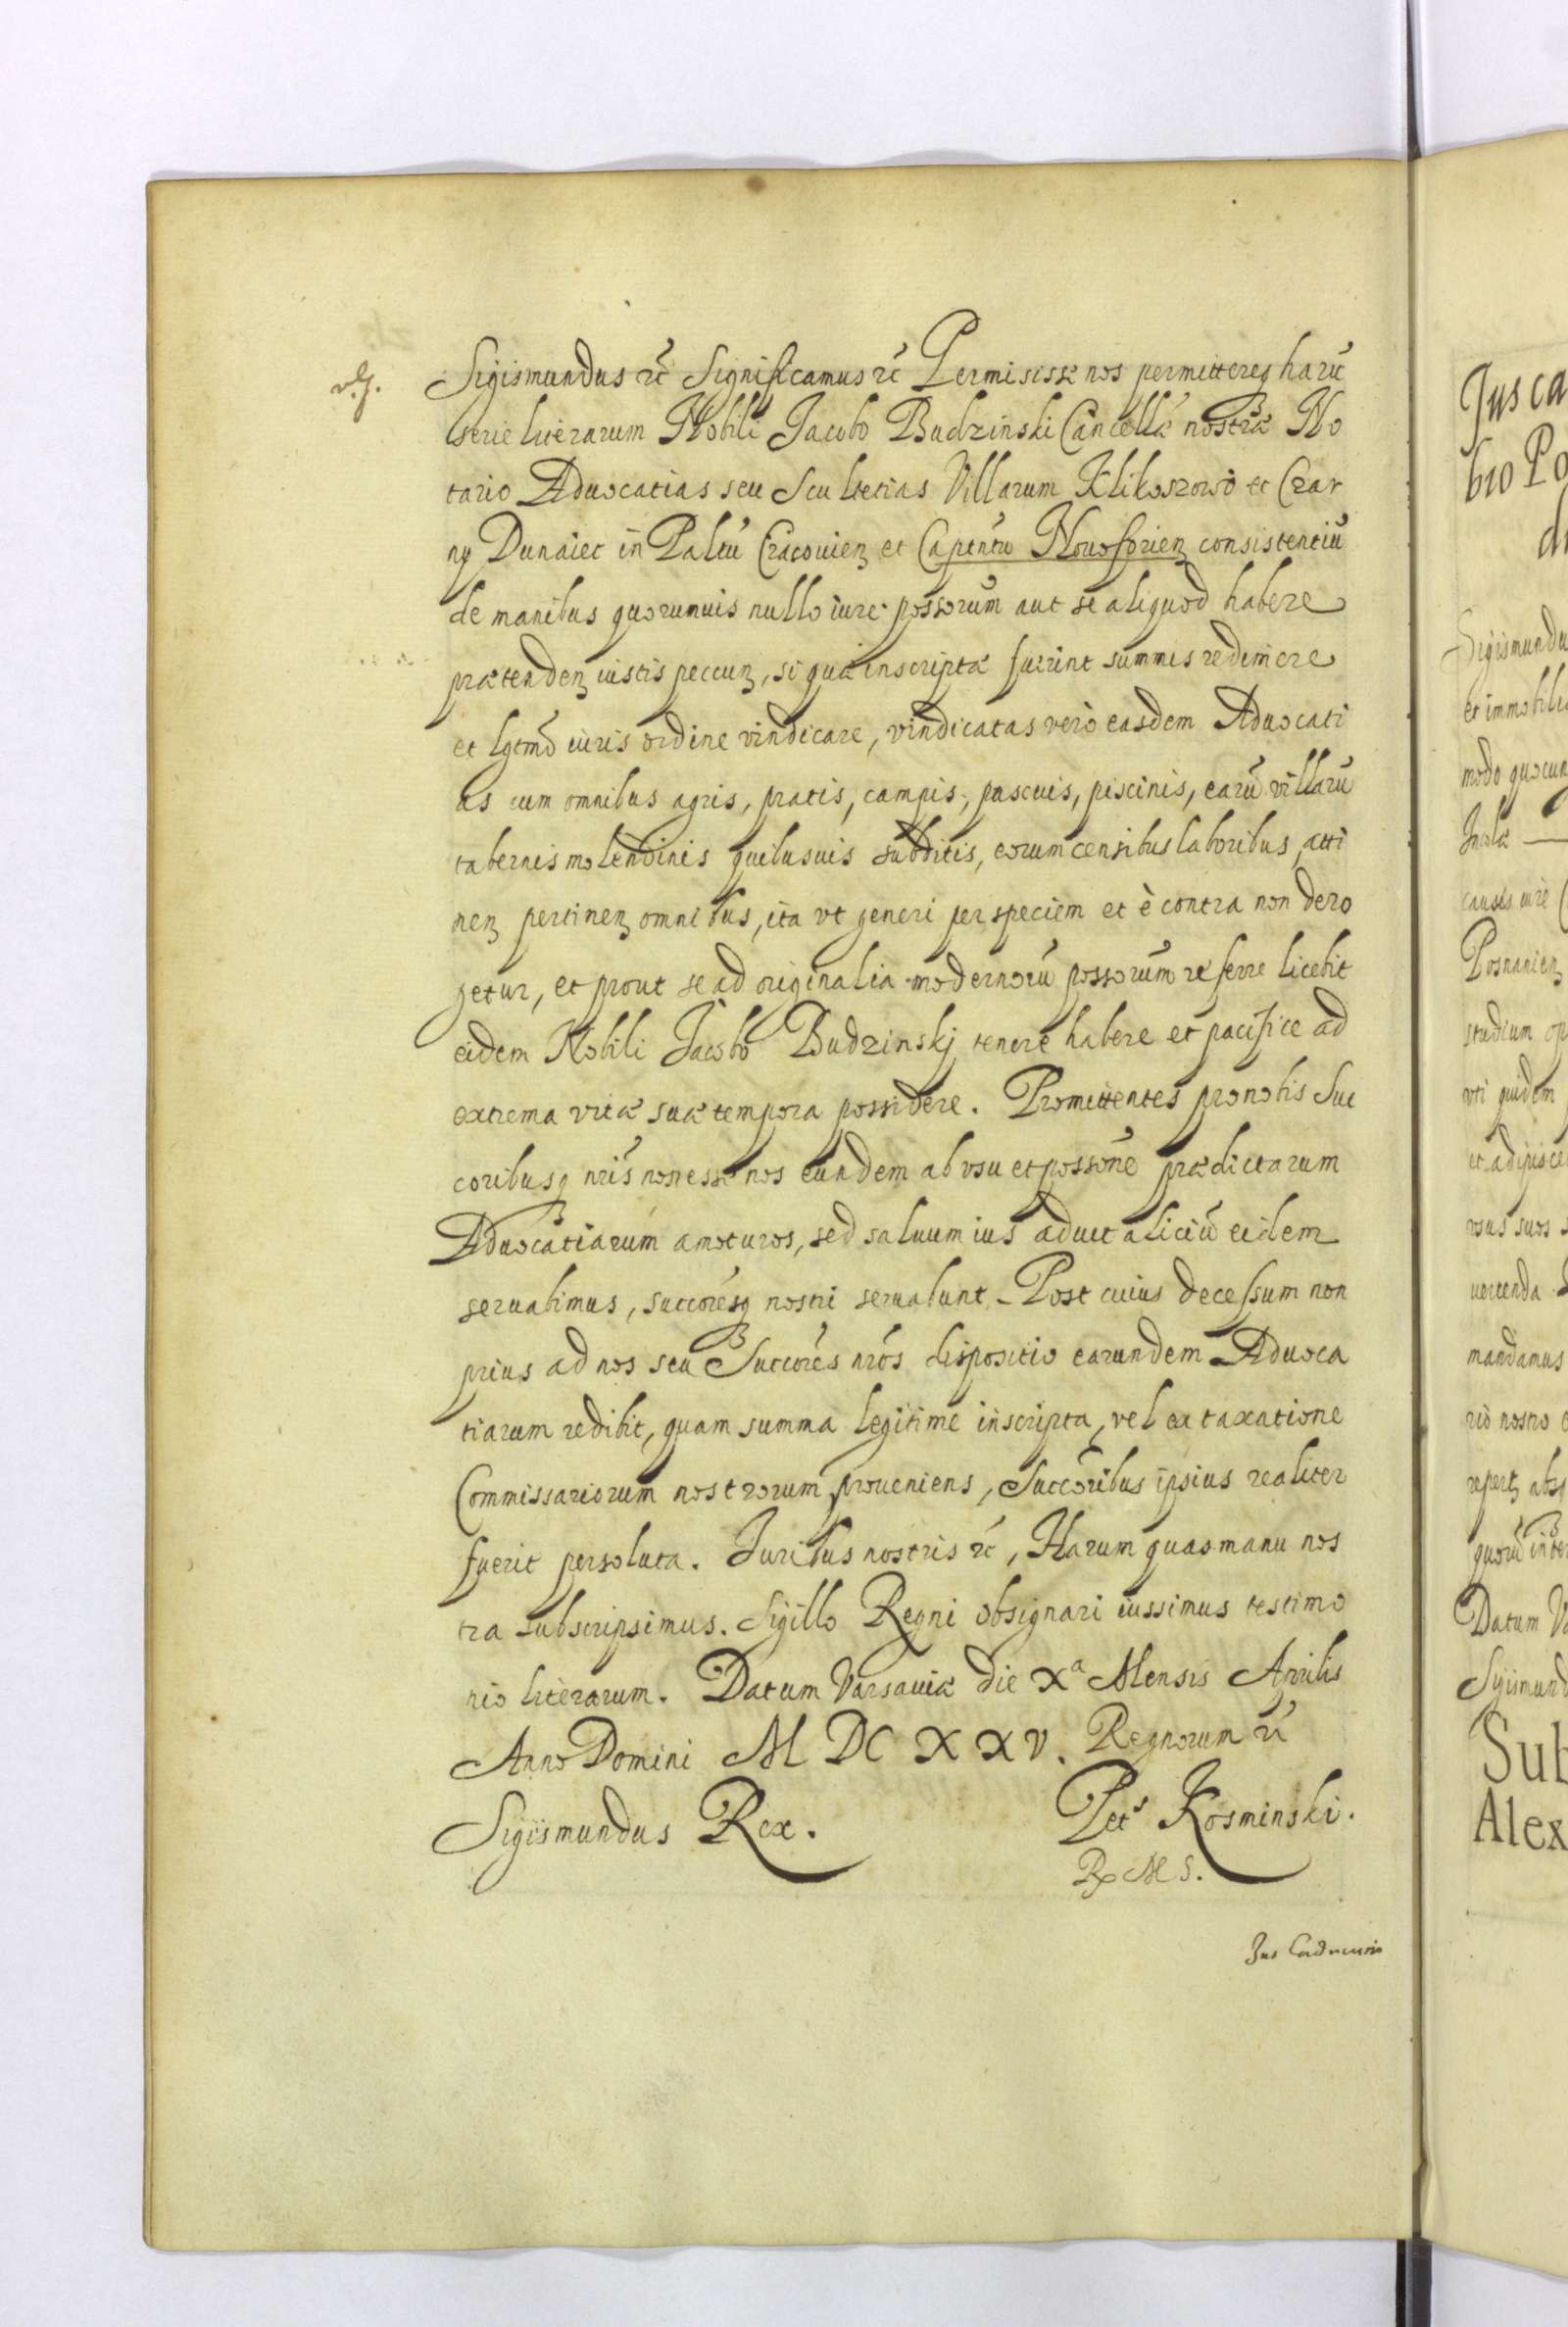 Sigismundus rć Significamus rć Permisisse nos permittereq harū
serie literarum Nobili Jacobo Budzinski Cancellæ nostræ No
tario Aduocatias seu Scultetias Villarum Klikoszowo et Czar
ny Dunaiec in Paltū Cracouien et Capentū Nouoforien consistentiū
de manibus quorumuis nullo iure possorum aut se aliquod habere
prætenden iustis peccun, si qua inscriptæ fuerint summis redimere
et lgtmo iuris ordine vindicare, vindicatas verò easdem Aduocati
as cum omnibus agris, pratis, campis, pascuis, piscinis, earū villarū
tabernis molendinis quibusuis subditis, eorum censibus laboribus, atti
nen pertinen omnibus, ita vt generi per speciem et è contra non dero
getur, et prout se ad originalia modernorū possorum referre licebit
eidem Nobili Jacobo Budzinskj tenere habere et pacifice ad
extrema vitæ suæ tempora possidere. Promittentes pro nobis Suc
coribusq nrīs non esse nos eundem ab vsu et possōne prædictarum
Aduocatiarum amoturos, sed saluum ius aduitaliciū eidem
seruabimus, succoresq nostri seruabunt. Post cuius decessum non
prius ad nos seu Succores nrōs dispositio earundem Aduoca
tiarum redibit, quam summa legitime inscripta, vel ex taxatione
Commissariorum nostrorum proueniens, Succoribus ipsius realiter
fuerit persoluta. Juribus nostris rć, Harum quas manu nos
tra subscripsimus. Sigillo Regni obsignari iussimus testimo
nio literarum. Datum Varsauiæ die Xª Mensis Aprilis
Anno Domini M DC XXV. Regnorum rć
Sigismundus Rex. Pets Kosminski.
Rx M S.
Jus Caducum
Jus ca
bio Po
Sigismundu
et immobilia
modo quocun
Posnanien
studium
vti quidem
et adipisce
vsus suos
mandamus
rio nostro
Datum Va
Sigismund
Sub
Alex